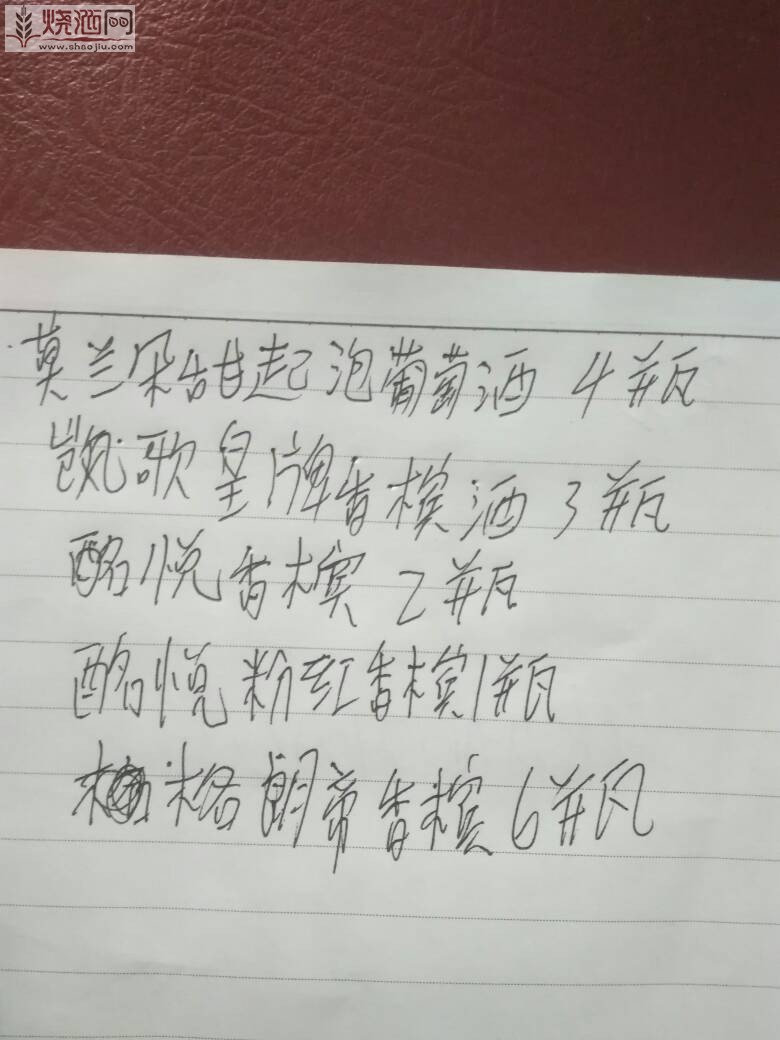 烧酒网
www.shaojiu.com
莫兰朵甜起泡葡萄酒 4瓶
凯歌皇牌香槟酒 3瓶
酩悦香槟 2瓶
酩悦粉红香槟1瓶
格朗帝香槟 6瓶